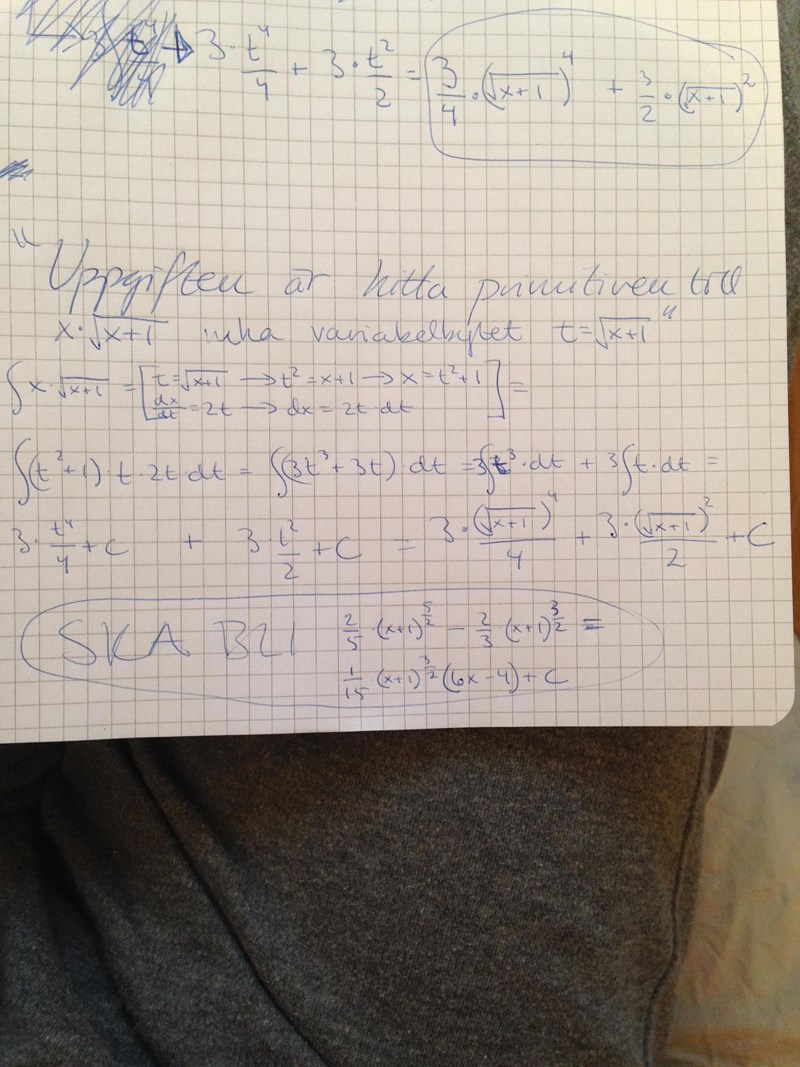 3·t⁴/4 + 3·t²/2 = 3/4·(√x+1)⁴ + 3/2·(√x+1)²
"Uppgiften är hitta primitiven till
x·√x+1 mha variabelbytet t=√x+1"
∫x·√x+1 = [t=√x+1 → t²=x+1 → x=t²+1
dx/dt=2t → dx=2t·dt] =
∫(t²+1)·t·2t·dt = ∫(3t³+3t)·dt = 3∫t³·dt + 3∫t·dt =
3·t⁴/4+C + 3·t²/2+C = 3·(√x+1)⁴/4 + 3·(√x+1)²/2 + C
SKA BLI 2/5·(x+1)^5/2 − 2/3·(x+1)^3/2 =
1/15·(x+1)^3/2(6x−4)+C